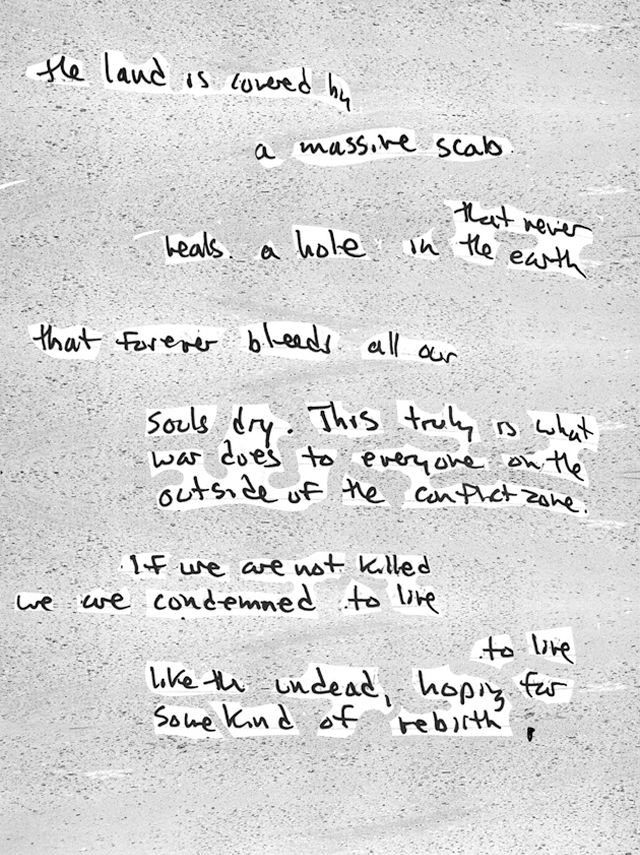 the land is covered by
a massive scab
that never
heals. a hole in the earth
that forever bleeds all our
souls dry. This truly is what
war does to everyone on the
outside of the conflict zone.
If we are not killed
we are condemned to live
to live
like the undead, hoping for
some kind of rebirth.